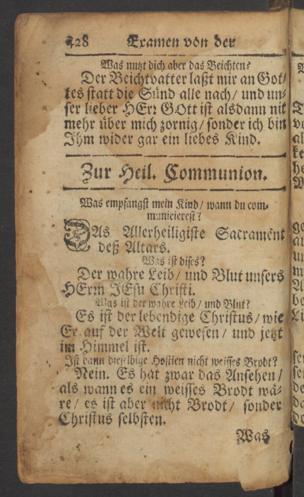 128 Examen von der
Was nutzt dich aber das Beichten?
Der Beichtvatter laßt mir an Got/
tes statt die Sünd alle nach/ und un/
ser lieber HErr GOtt ist alsdann nit
mehr über mich zornig/ sonder ich bin
Ihm wider gar ein liebes Kind.
Zur Heil. Communion.
Was empfangst mein Kind/ wann du com-
municierest?
DAs Allerheiligiste Sacrament
deß Altars.
Was ist dises?
Der wahre Leib/ und Blut unsers
HErrn JEsu Christi.
Was ist der wahre Leib/ und Blut?
Es ist der lebendige Christus/ wie
Er auf der Welt gewesen/ und jetzt
im Himmel ist.
Ist dann dieselbige Hostien nicht weisses Brodt?
Nein. Es hat zwar das Ansehen/
als wann es ein weisses Brodt wä-
re/ es ist aber nicht Brodt/ sonder
Christus selbsten.
Was